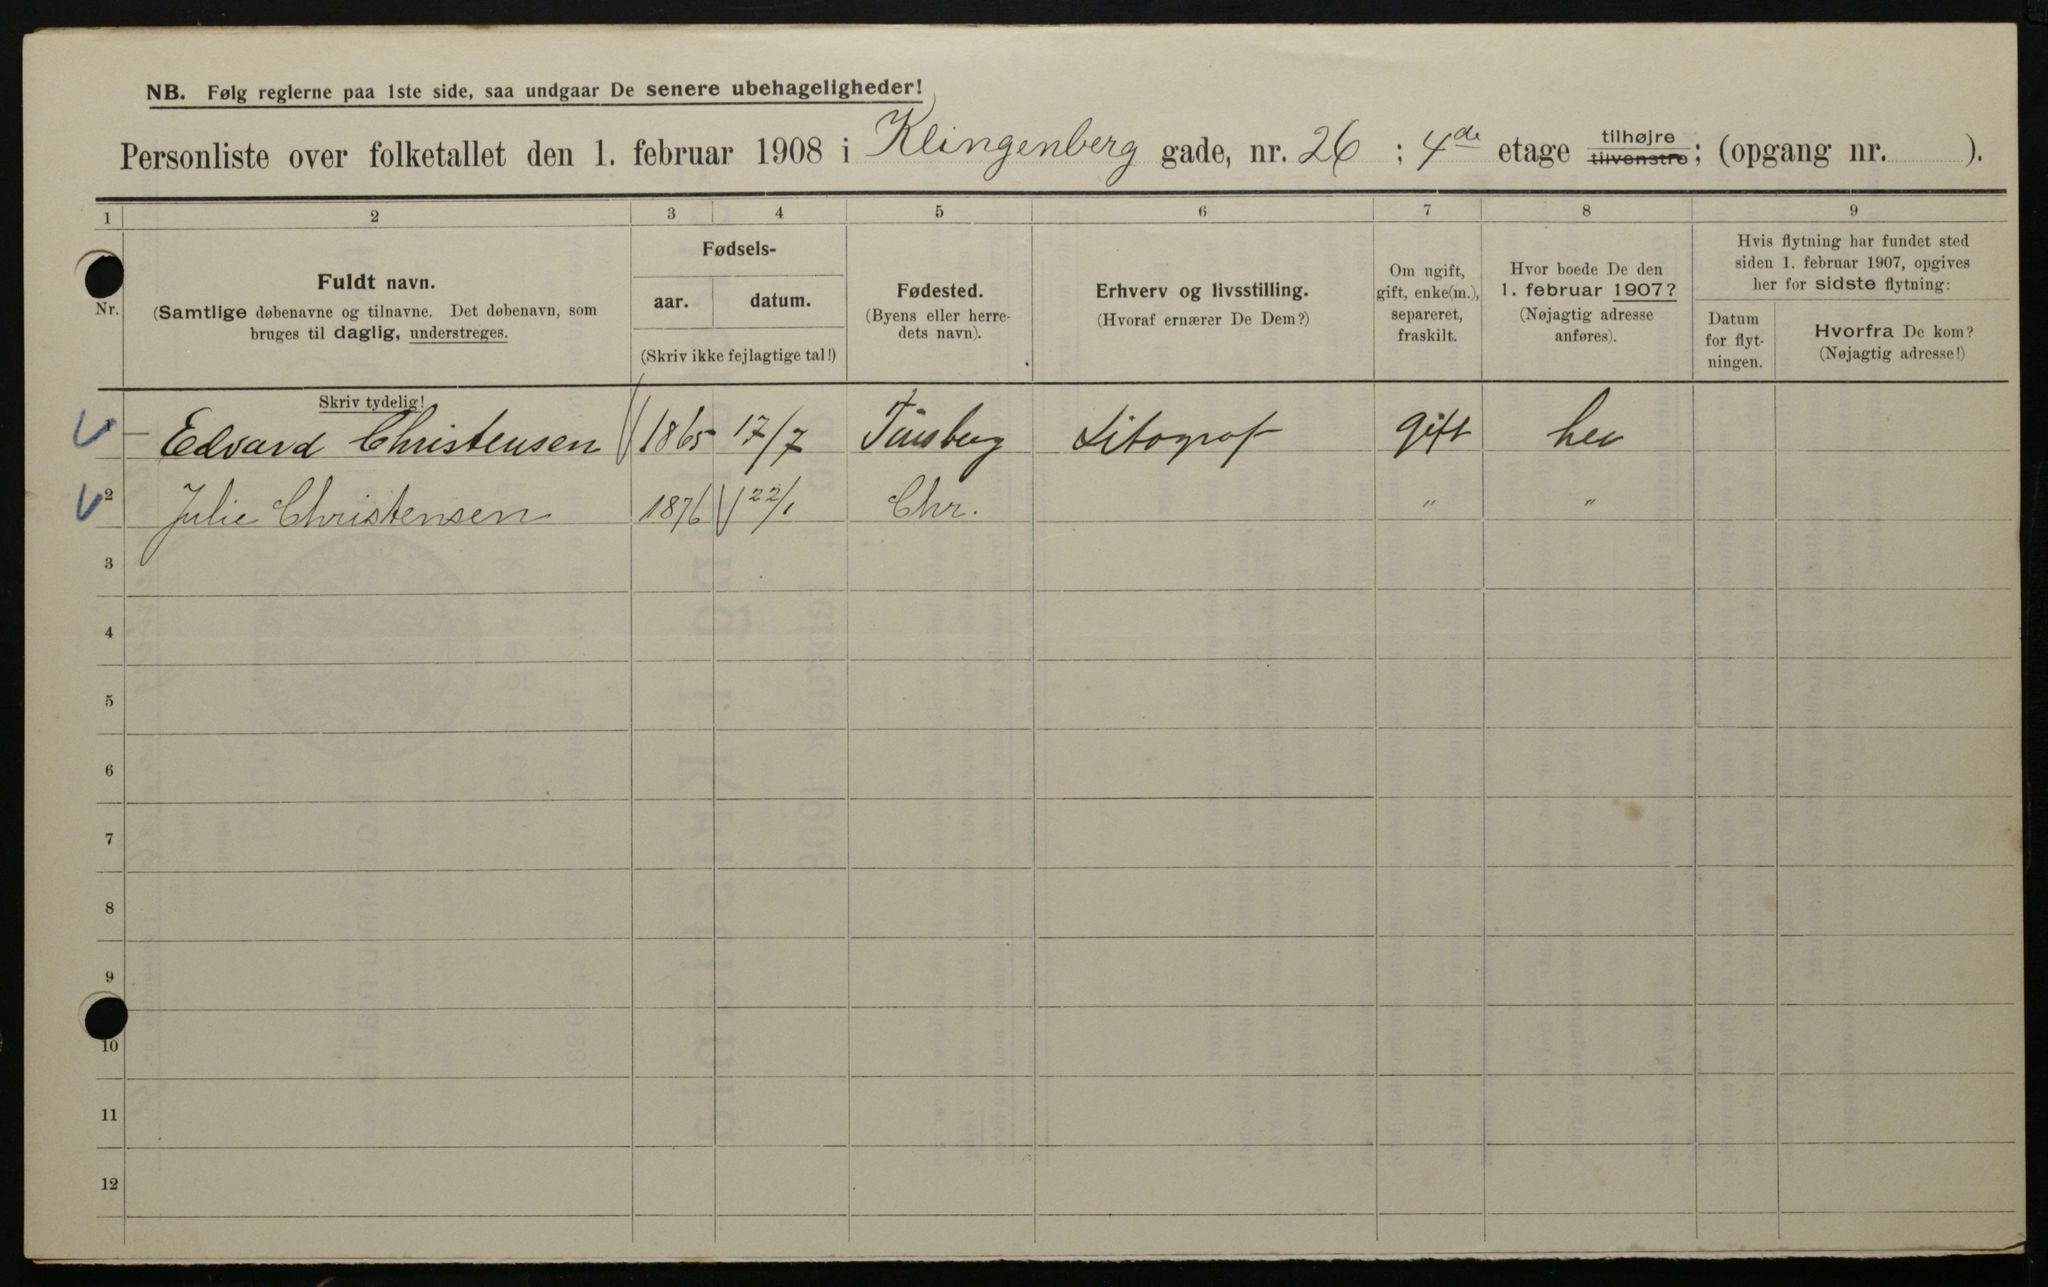 NB. Følg reglerne paa 1ste side, saa undgaar De senere ubehageligheder!
Personliste over folketallet den 1. februar 1908 i Klingenberg gade, nr. 26 ; 4de etage tilhøjre tilvenstre; (opgang nr. ).
1 2 3 4 5 6 7 8 9
Nr.
Fuldt navn.
(Samtlige døbenavne og tilnavne. Det døbenavn, som
bruges til daglig, understreges.
Skriv tydelig!
Fødsels-
aar. datum.
(Skriv ikke fejlagtige tal!)
Fødested.
(Byens eller herre-
dets navn).
Erhverv og livsstilling.
(Hvoraf ernærer De Dem?)
Om ugift,
gift, enke(m.),
separeret,
fraskilt.
Hvor boede De den
1. februar 1907?
(Nøjagtig adresse
anføres).
Hvis flytning har fundet sted
siden 1. februar 1907, opgives
her for sidste flytning:
Datum
for flyt-
ningen.
Hvorfra De kom?
(Nøjagtig adresse!)
1 Edvard Christensen 1865 17/7 Tønsberg Litograf gift her
2 Julie Christensen 1876 22/1 Chr. " "
3
4
5
6
7
8
9
10
11
12